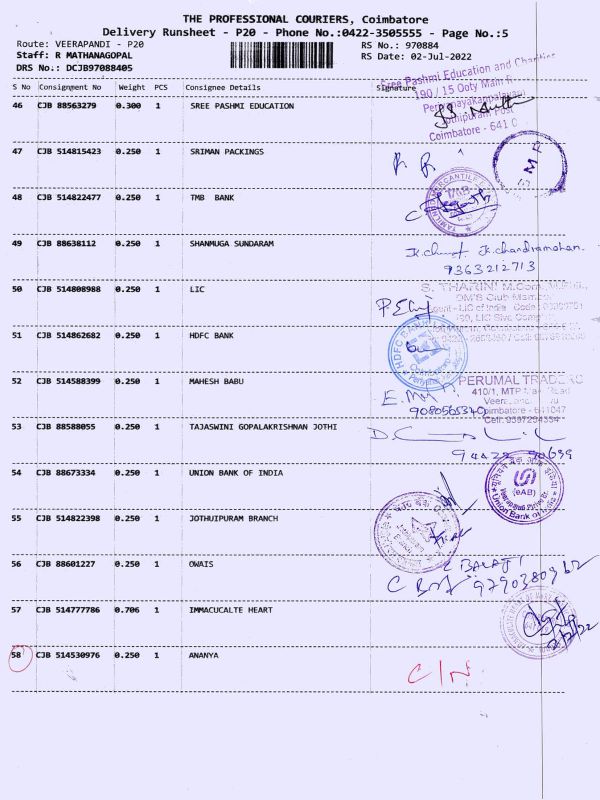 THE PROFESSIONAL COURIERS, Coimbatore
Delivery Runsheet - P20 - Phone No.:0422-3505555 - Page No.:5
Route: VEERAPANDI - P20 RS No.: 970884
Staff: R MATHANAGOPAL RS Date: 02-Jul-2022
DRS No.: DCJB97088405
S No Consignment No Weight PCS Consignee Details Signature
Sree Pashmi Education and Charities
190 / 15 Ooty Main R
46 CJB 88563279 0.300 1 SREE PASHMI EDUCATION
Jothipuram Post
Coimbatore - 641 0
47 CJB 514815423 0.250 1 SRIMAN PACKINGS
48 CJB 514822477 0.250 1 TMB BANK
49 CJB 88638112 0.250 1 SHANMUGA SUNDARAM
K. chandramohan.
9363212713
50 CJB 514808988 0.250 1 LIC
S. THARINI M.Com.
51 CJB 514862682 0.250 1 HDFC BANK
HDFC BANK
Coimbatore
52 CJB 514588399 0.250 1 MAHESH BABU
PERUMAL TRADERS
410/1, MTP Main Road
Coimbatore - 641047
53 CJB 88588055 0.250 1 TAJASWINI GOPALAKRISHNAN JOTHI
54 CJB 88673334 0.250 1 UNION BANK OF INDIA
(eAB)
Union Bank of India
55 CJB 514822398 0.250 1 JOTHUIPURAM BRANCH
56 CJB 88601227 0.250 1 OWAIS
C BALAJI
57 CJB 514777786 0.706 1 IMMACUCALTE HEART
58 CJB 514530976 0.250 1 ANANYA
C/N.